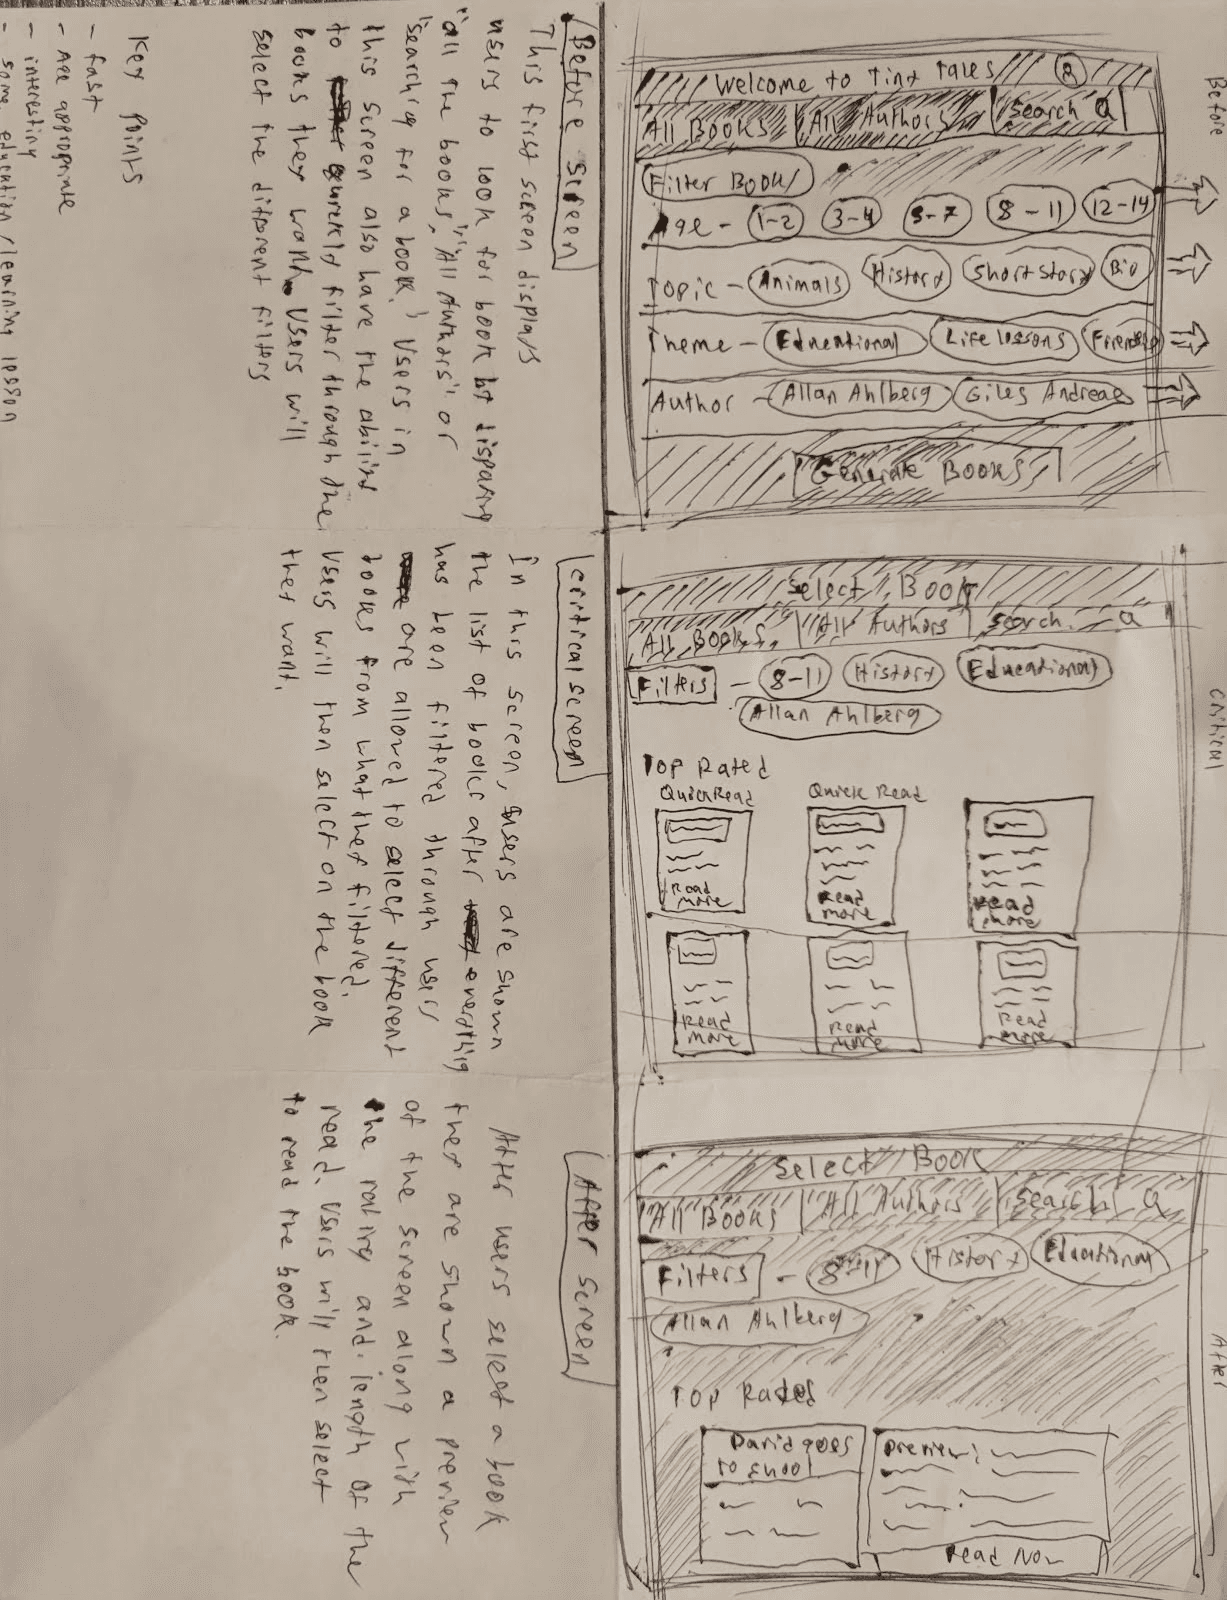 Before
Welcome to Tiny Tales
All Books
All Authors
Search
Filter Books
Age - 1-2 3-4 5-7 8-11 12-14
Topic - Animals History Short Story Bio
Theme - Educational Life lessons Friendship
Author - Allan Ahlberg Giles Andreae
Generate Books
Critical
Select Book
All Books
All Authors
Search
Filters - 8-11 History Educational
Allan Ahlberg
Top Rated
Quick Read Quick Read
Read
more
Read
more
Read
more
Read
more
Read
more
Read
more
After
Select Book
All Books
All Authors
Search
Filters - 8-11 History Educational
Allan Ahlberg
Top Rates
David goes
to school
Preview:
Read Now
Before Screen
This first screen displays
users to look for book by disparing
"all the books", "All Authors" or
"searching for a book". Users in
this screen also have the ability
to quickly filter through the
books they want. Users will
select the different filters
Key points
- fast
- Age appropriate
- interesting
- some education/learning lesson
Critical screen
In this screen, users are shown
the list of books after everything
has been filtered through users
are allowed to select different
books from what they filtered.
Users will then select on the book
they want.
After Screen
After users select a book
they are shown a preview
of the screen along with
the rating and length of the
read. Users will then select
to read the book.